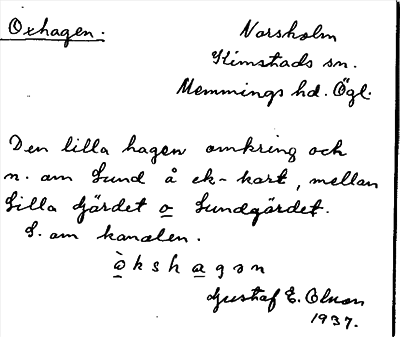 Oxhagen.
Norsholm
Kimstads sn.
Memmings hd. Ögl.
Den lilla hagen omkring och
n. om Lund å ek-kart, mellan
Lilla Gärdet o Lundgärdet.
S. om kanalen.
ò k s h a g ə n
Gustaf E. Olson
1937.